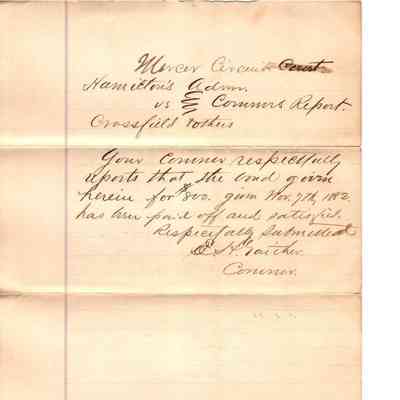 Mercer Circuit Court
Hamilton's Admr.
vs Commrs Report.
Crossfield & others
Your Commr respectfully
reports that the bond given
herein for $800. given Nov. 7th, 1882
has been paid off and satisfied.
Respectfully Submitted
E. H. Gaither.
Commr.